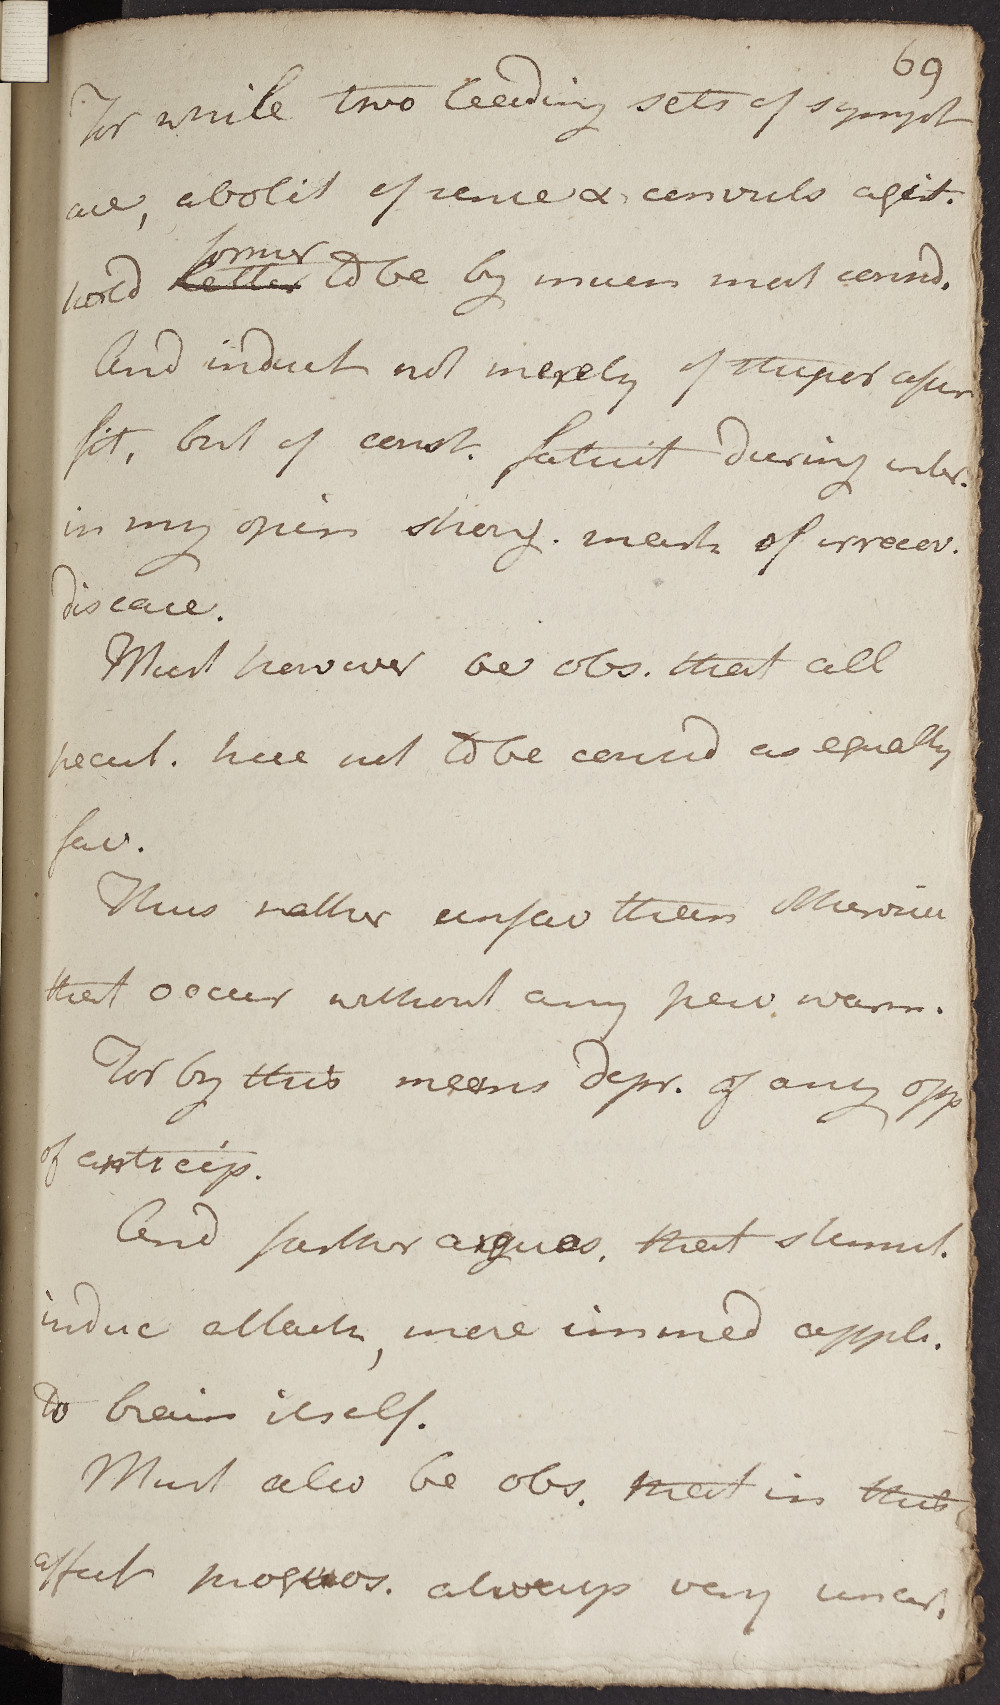 69
For while two leading sets of sympt
are, abolit of sense & convuls agit.
hold former latter to be by much most consd.
And induct not merely of stupor after
fit, but of const. fatuit during inter.
in my opin strong. mark of irrecov.
disease.
Must however be obs. that all
pecul. here not to be consd as equally
fav.
Thus rather unfav than otherwise
that occur without any prev. warn.
For by this means depr. of any opp
of anticip.
And farther argues, that stimul.
induc attack, more immed appli.
to brain itself.
Must also be obs. that in this
affect prognos. always very uncer.